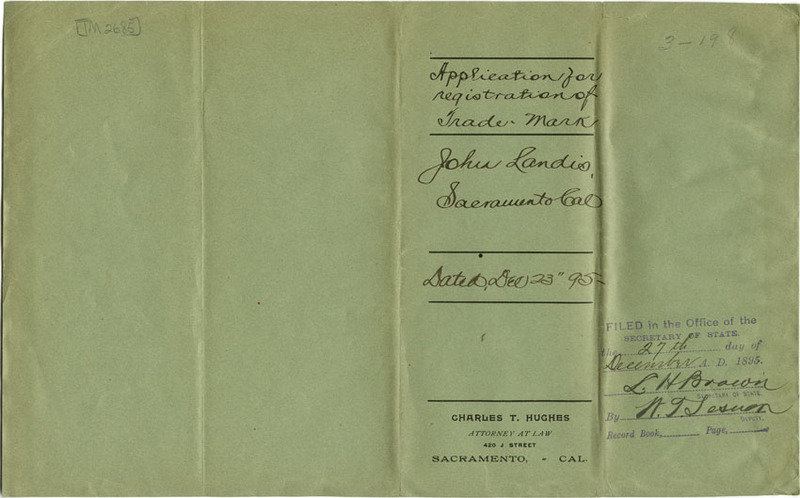 TM 2685
3-198
Application for
registration of
Trade-Mark
John Landis,
Sacramento Cal
Dated, Dec 23" 95-
CHARLES T. HUGHES
ATTORNEY AT LAW
420 J STREET
SACRAMENTO, - CAL.
FILED in the Office of the
SECRETARY OF STATE
the 27th day of
December A. D. 1895.
L. H. Brown
SECRETARY OF STATE.
By
DEPUTY.
Record Book, Page,